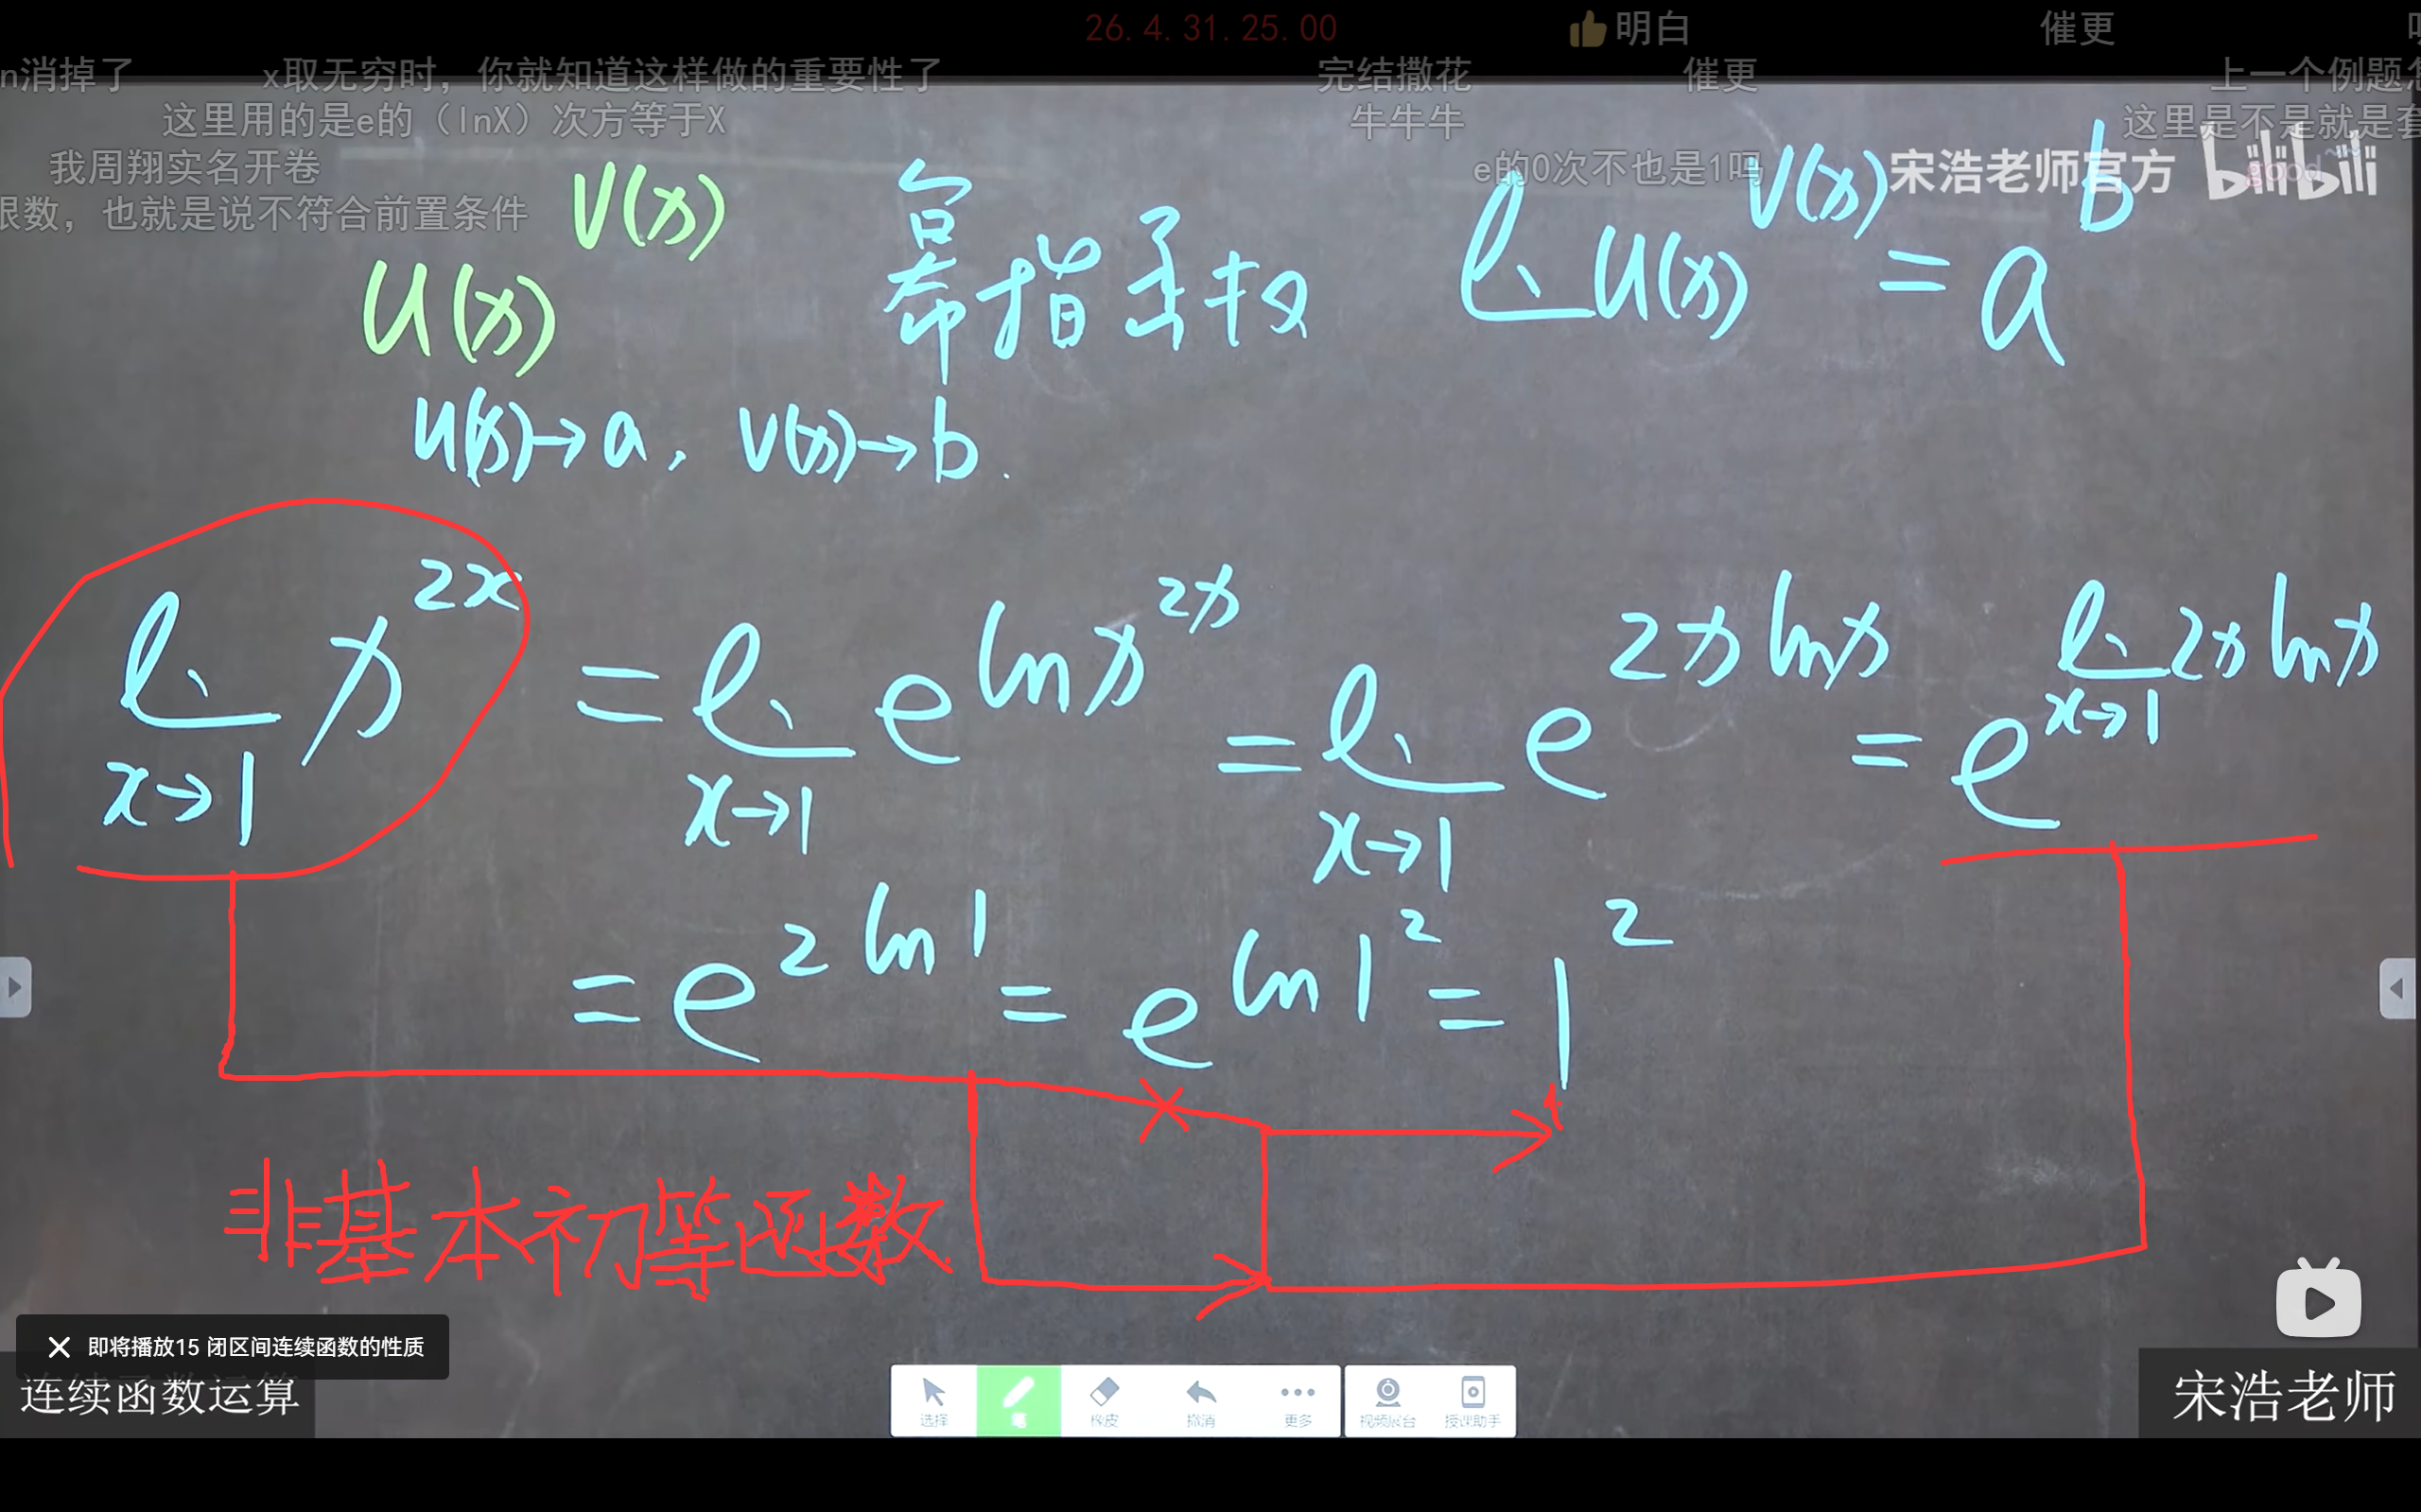 26.4.31.25.00
明白
催更
n消掉了
x取无穷时，你就知道这样做的重要性了
完结撒花
催更
上一个例题怎
这里用的是e的（lnX）次方等于X
牛牛牛
这里是不是就是套
我周翔实名开卷
e的0次不也是1吗
宋浩老师官方
bilibili
good~~
限数，也就是说不符合前置条件
U(x)^V(x) 幂指函数 lim U(x)^V(x) = a^b
U(x)→a, V(x)→b.
lim x→1 x^2x = lim x→1 e^ln x^2x = lim x→1 e^2x ln x = e^lim x→1 2x ln x
= e^2 ln 1 = e^ln 1^2 = 1^2
非基本初等函数
即将播放15 闭区间连续函数的性质
连续函数运算
选择
笔
橡皮
撤消
更多
视频展台
授课助手
宋浩老师